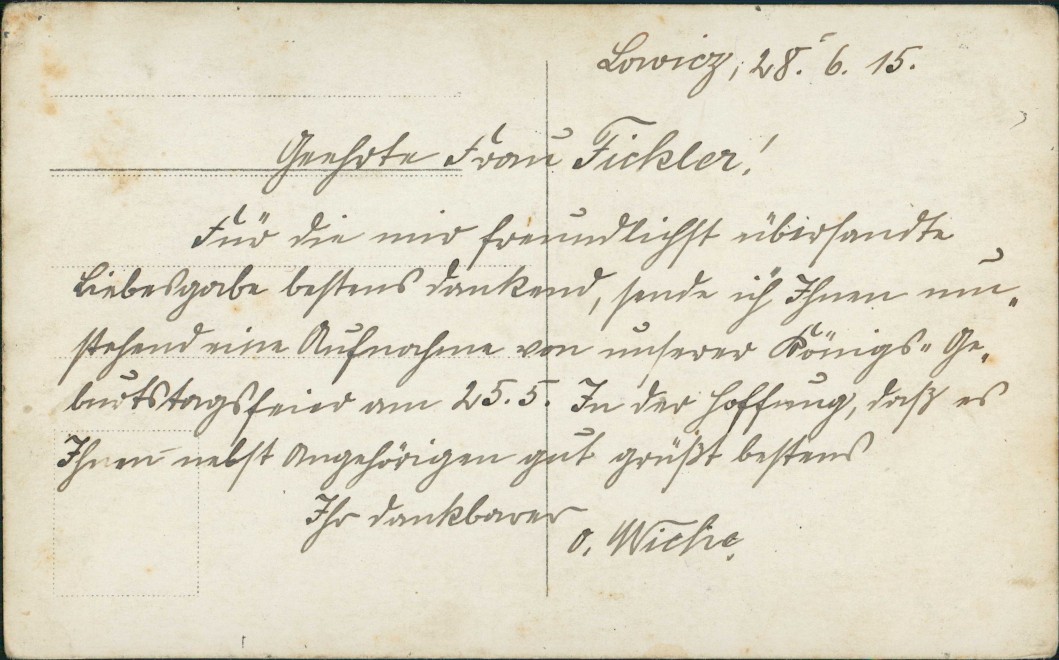 Lowicz, 28. 6. 15.
Geehrte Frau Fickler!
Für die mir freundlichst übersandte
Liebesgabe bestens dankend, sende ich Ihnen um-
stehend eine Aufnahme von unserer Königs-Ge-
burtstagsfeier am 25. 5. In der Hoffnung, daß es
Ihnen nebst Angehörigen gut grüßt bestens
Ihr dankbarer
O.